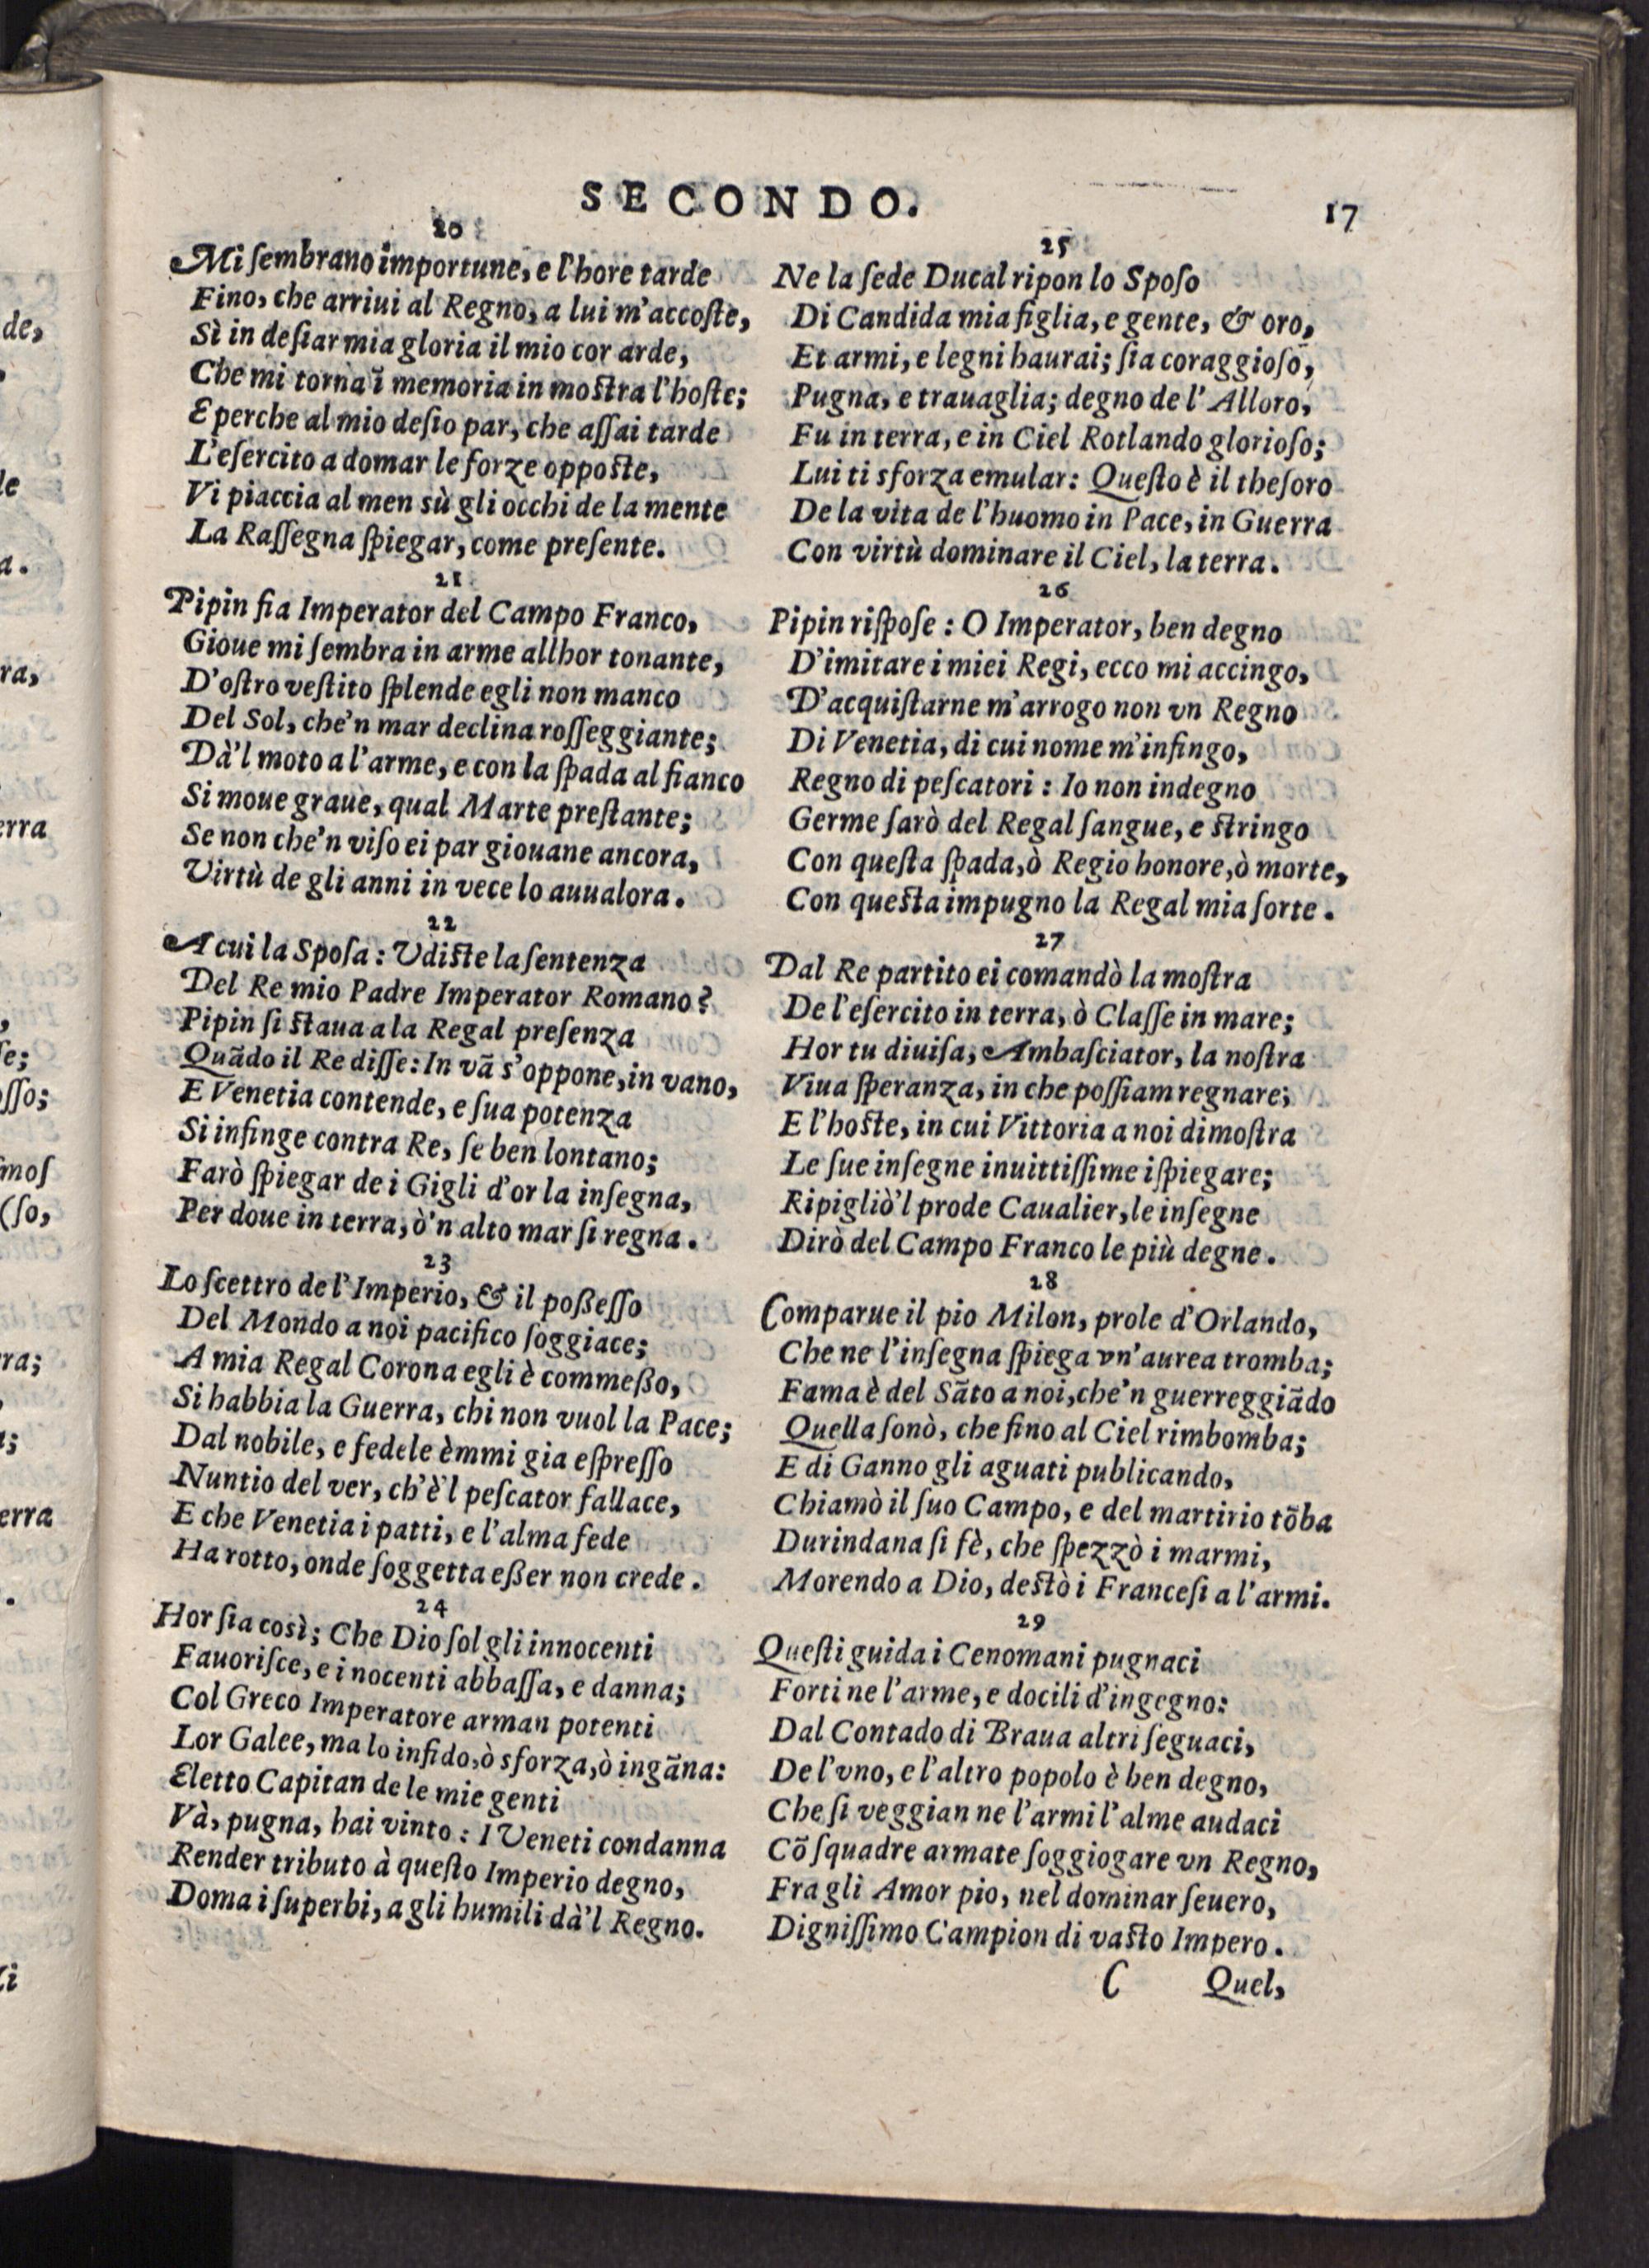 SECONDO.
17
20
Mi ſembrano importune, e l'hore tarde
Fino, che arriui al Regno, a lui m'accoſte,
Sì in deſiar mia gloria il mio cor arde,
Che mi torna ĩ memoria in moſtra l'hoſte;
E perche al mio deſio par, che aſſai tarde
L'eſercito a domar le forze oppoſte,
Vi piaccia al men sù gli occhi de la mente
La Raſſegna ſpiegar, come preſente.
21
Pipin fia Imperator del Campo Franco,
Gioue mi ſembra in arme allhor tonante,
D'oſtro veſtito ſplende egli non manco
Del Sol, che'n mar declina roſſeggiante;
Dà'l moto a l'arme, e con la ſpada al fianco
Si moue graue, qual Marte preſtante;
Se non che'n viſo ei par giouane ancora,
Virtù de gli anni in vece lo auualora.
22
A cui la Spoſa: Vdiſte la ſentenza
Del Re mio Padre Imperator Romano?
Pipin ſi ſtaua a la Regal preſenza
Quãdo il Re diſſe: In vã s'oppone, in vano,
E Venetia contende, e ſua potenza
Si infinge contra Re, ſe ben lontano;
Farò ſpiegar de i Gigli d'or la inſegna,
Per doue in terra, ò'n alto mar ſi regna.
23
Lo ſcettro de l'Imperio, & il poßeſſo
Del Mondo a noi pacifico ſoggiace;
A mia Regal Corona egli è commeßo,
Si habbia la Guerra, chi non vuol la Pace;
Dal nobile, e fedele èmmi gia eſpreſſo
Nuntio del ver, ch'è'l peſcator fallace,
E che Venetia i patti, e l'alma fede
Ha rotto, onde ſoggetta eßer non crede.
24
Hor ſia così; Che Dio ſol gli innocenti
Fauoriſce, e i nocenti abbaſſa, e danna;
Col Greco Imperatore arman potenti
Lor Galee, ma lo infido, ò sforza, ò ingãna:
Eletto Capitan de le mie genti
Và, pugna, hai vinto: I Veneti condanna
Render tributo à queſto Imperio degno,
Doma i ſuperbi, a gli humili dà'l Regno.
25
Ne la ſede Ducal ripon lo Spoſo
Di Candida mia figlia, e gente, & oro,
Et armi, e legni haurai; ſia coraggioſo,
Pugna, e trauaglia; degno de l'Alloro,
Fu in terra, e in Ciel Rotlando glorioſo;
Lui ti sforza emular: Queſto è il theſoro
De la vita de l'huomo in Pace, in Guerra
Con virtù dominare il Ciel, la terra.
26
Pipin riſpoſe: O Imperator, ben degno
D'imitare i miei Regi, ecco mi accingo,
D'acquiſtarne m'arrogo non vn Regno
Di Venetia, di cui nome m'infingo,
Regno di peſcatori: Io non indegno
Germe ſarò del Regal ſangue, e ſtringo
Con queſta ſpada, ò Regio honore, ò morte,
Con queſta impugno la Regal mia ſorte.
27
Dal Re partito ei comandò la moſtra
De l'eſercito in terra, ò Claſſe in mare;
Hor tu diuiſa, Ambaſciator, la noſtra
Viua ſperanza, in che poſſiam regnare;
E l'hoſte, in cui Vittoria a noi dimoſtra
Le ſue inſegne inuittiſſime iſpiegare;
Ripigliò'l prode Caualier, le inſegne
Dirò del Campo Franco le più degne.
28
Comparue il pio Milon, prole d'Orlando,
Che ne l'inſegna ſpiega vn'aurea tromba;
Fama è del Sãto a noi, che'n guerreggiãdo
Quella ſonò, che fino al Ciel rimbomba;
E di Ganno gli aguati publicando,
Chiamò il ſuo Campo, e del martirio tõba
Durindana ſi fè, che ſpezzò i marmi,
Morendo a Dio, deſtò i Franceſi a l'armi.
29
Queſti guida i Cenomani pugnaci
Forti ne l'arme, e docili d'ingegno:
Dal Contado di Braua altri ſeguaci,
De l'vno, e l'altro popolo è ben degno,
Che ſi veggian ne l'armi l'alme audaci
Cõ ſquadre armate ſoggiogare vn Regno,
Fra gli Amor pio, nel dominar ſeuero,
Digniſſimo Campion di vaſto Impero.
C
Quel,